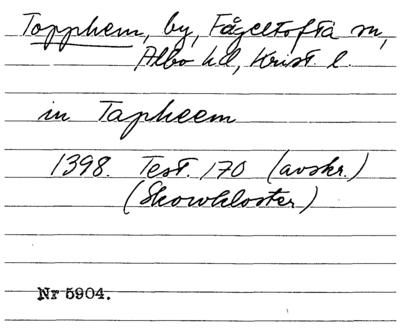 Topphem, by, Fågeltofta sn,
Albo hd, Krist. l.
in Tapheem
1398. Test. 170 (avskr.)
(Skowkloster)
Nr 5904.